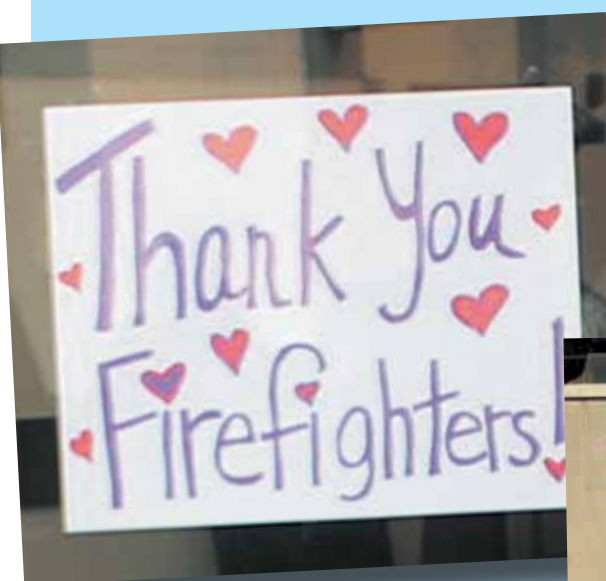 Thank You
Firefighters!